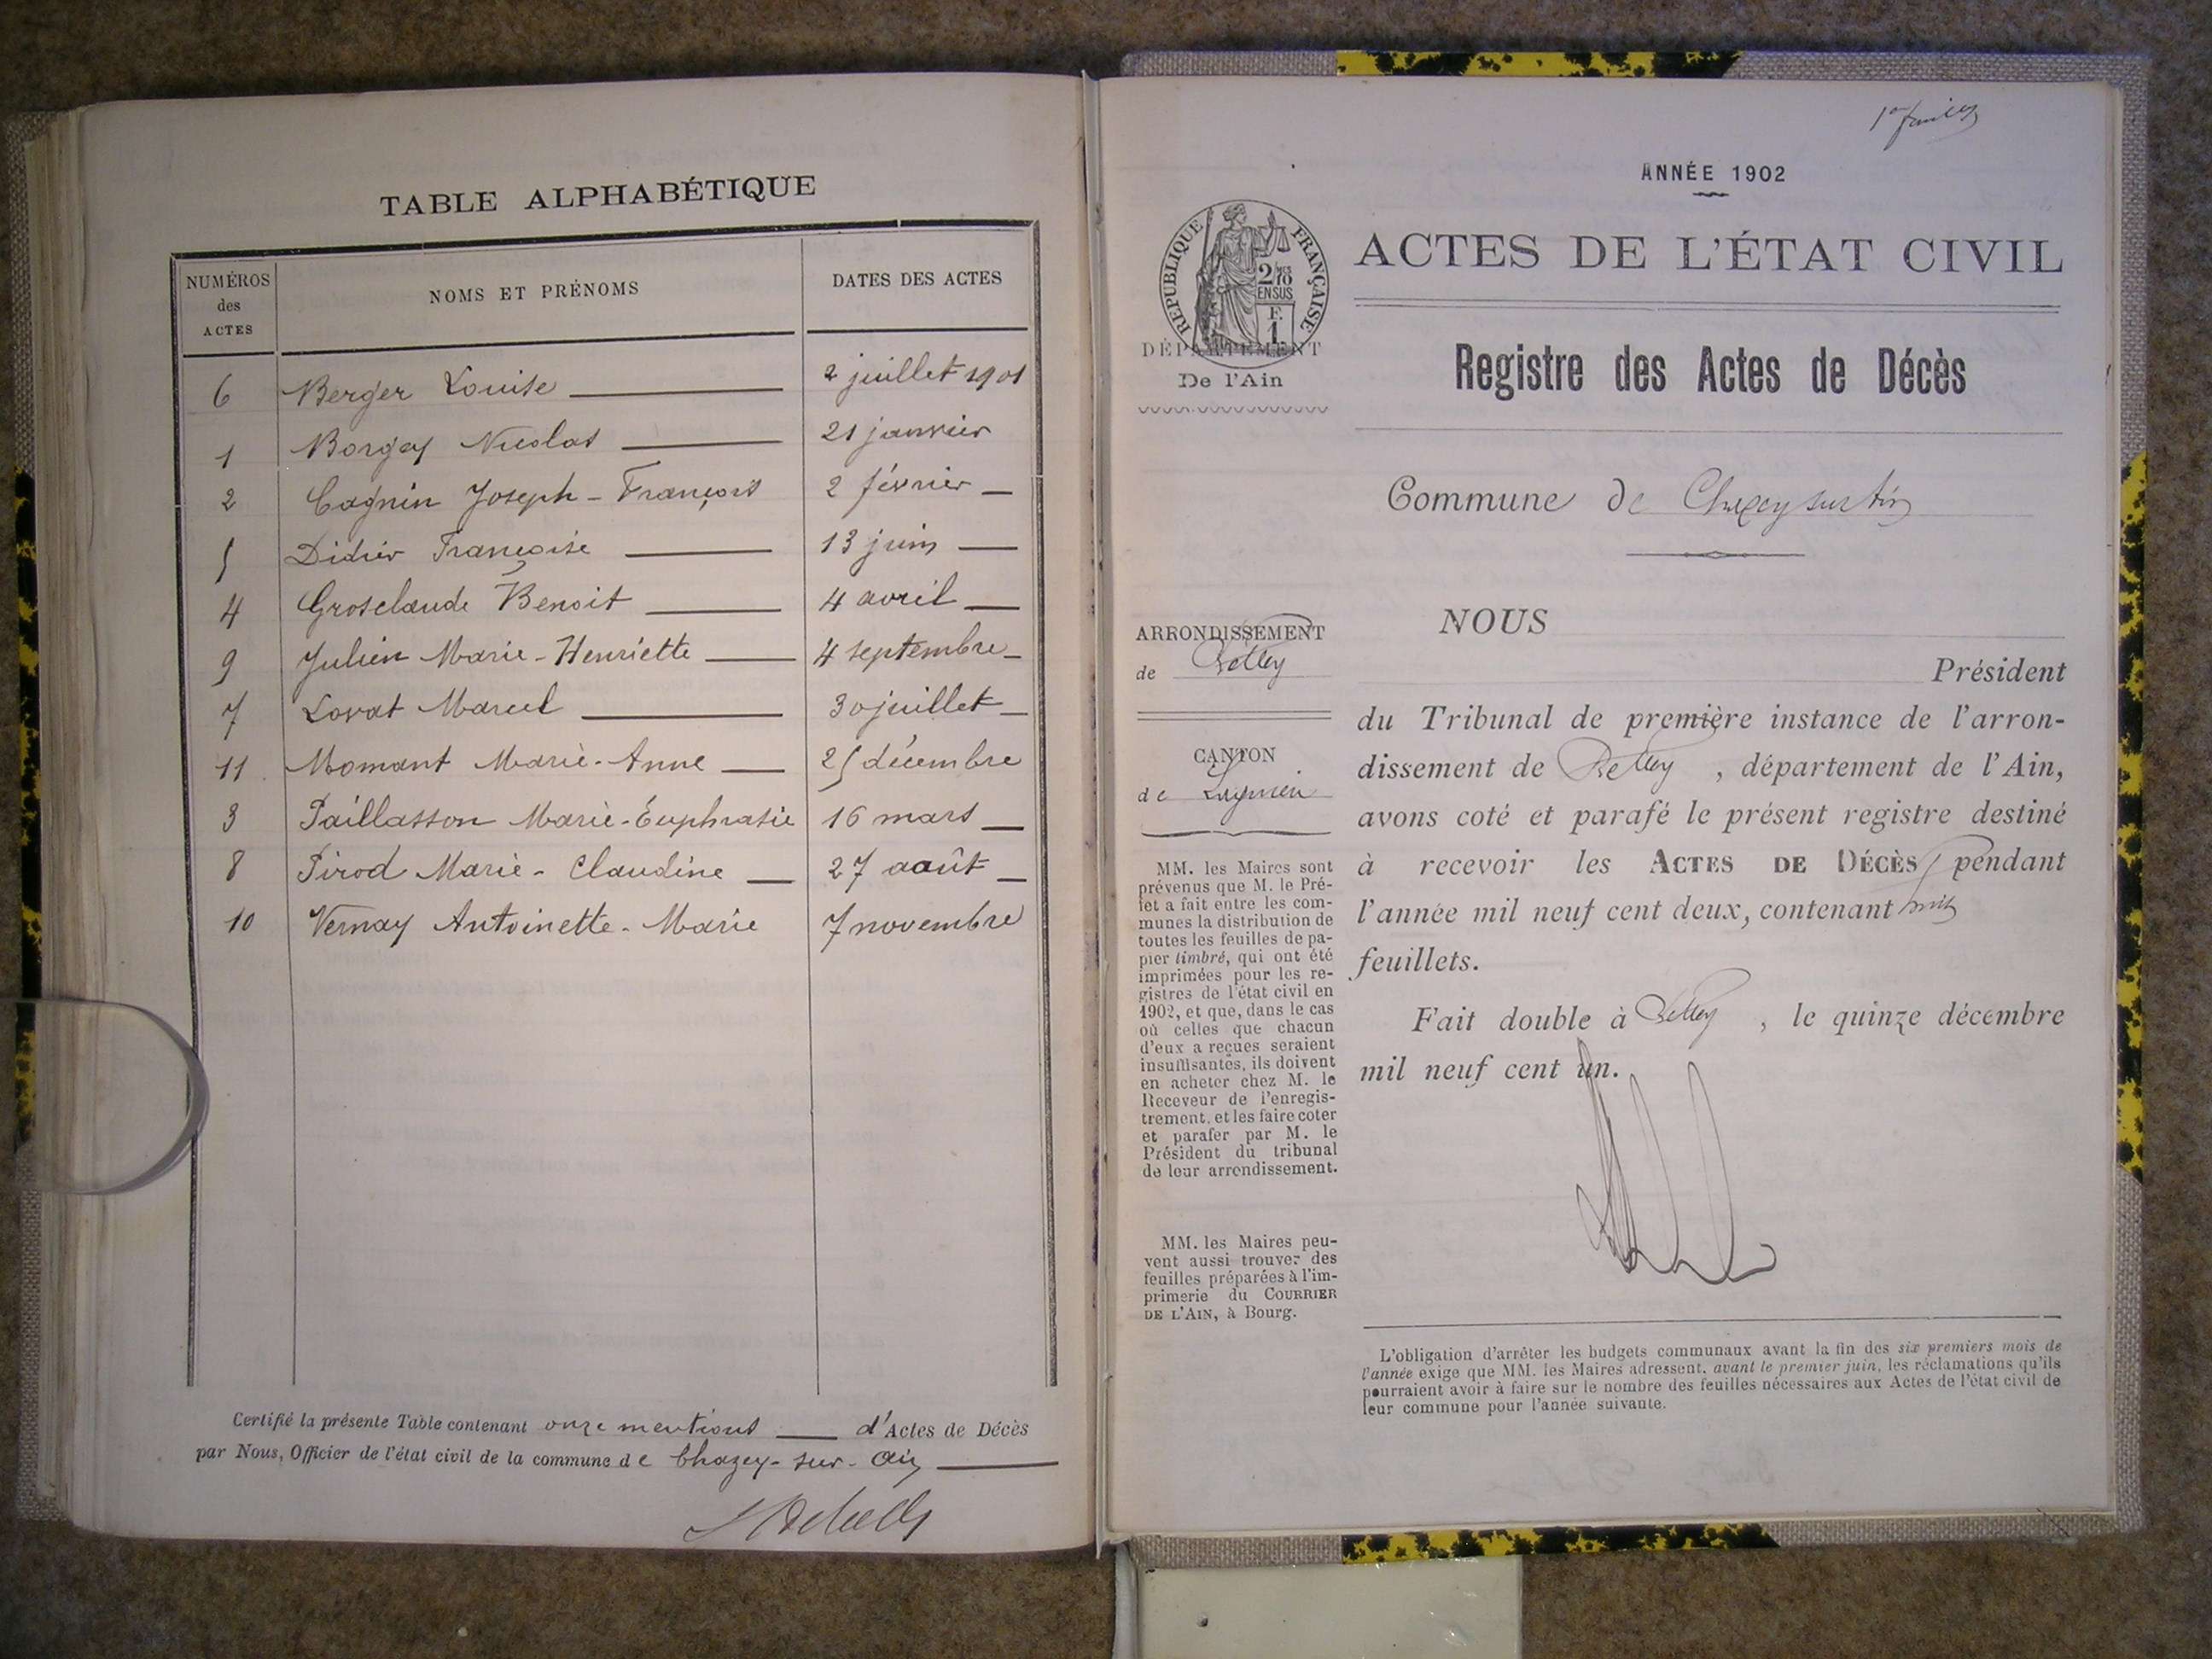 TABLE ALPHABÉTIQUE
NUMÉROS des ACTES
NOMS ET PRÉNOMS
DATES DES ACTES
6 Berger Louise 2 juillet 1901
1 Borgey Nicolas 21 janvier
2 Cagnin Joseph - François 2 février
5 Didier Françoise 13 juin
4 Grosclaude Benoit 4 avril
9 Julien Marie - Henriette 4 septembre
7 Lovat Marcel 30 juillet
11 Momant Marie - Anne 25 décembre
3 Paillasson Marie - Euphrasie 16 mars
8 Pirod Marie - Claudine 27 août
10 Vernay Antoinette - Marie 7 novembre
Certifié la présente Table contenant onze mentions d'Actes de Décès
par Nous, Officier de l'état civil de la commune de Chazey - sur - Ain
ANNÉE 1902
RÉPUBLIQUE FRANÇAISE
2/10 EN SUS
F. 1
DÉPARTEMENT
De l'Ain
ACTES DE L'ÉTAT CIVIL
Registre des Actes de Décès
Commune de Chazey sur Ain
ARRONDISSEMENT
de Belley
CANTON
de Lagnieu
MM. les Maires sont
prévenus que M. le Pré-
fet a fait entre les com-
munes la distribution de
toutes les feuilles de pa-
pier timbré, qui ont été
imprimées pour les re-
gistres de l'état civil en
1902, et que, dans le cas
où celles que chacun
d'eux a reçues seraient
insuffisantes, ils doivent
en acheter chez M. le
Receveur de l'enregis-
trement, et les faire coter
et parafer par M. le
Président du tribunal
de leur arrondissement.
MM. les Maires peu-
vent aussi trouver des
feuilles préparées à l'im-
primerie du COURRIER
DE L'AIN, à Bourg.
NOUS
Président
du Tribunal de première instance de l'arron-
dissement de Belley, département de l'Ain,
avons coté et parafé le présent registre destiné
à recevoir les ACTES DE DÉCÈS pendant
l'année mil neuf cent deux, contenant huit
feuillets.
Fait double à Belley, le quinze décembre
mil neuf cent un.
L'obligation d'arrêter les budgets communaux avant la fin des six premiers mois de
l'année exige que MM. les Maires adressent, avant le premier juin, les réclamations qu'ils
pourraient avoir à faire sur le nombre des feuilles nécessaires aux Actes de l'état civil de
leur commune pour l'année suivante.